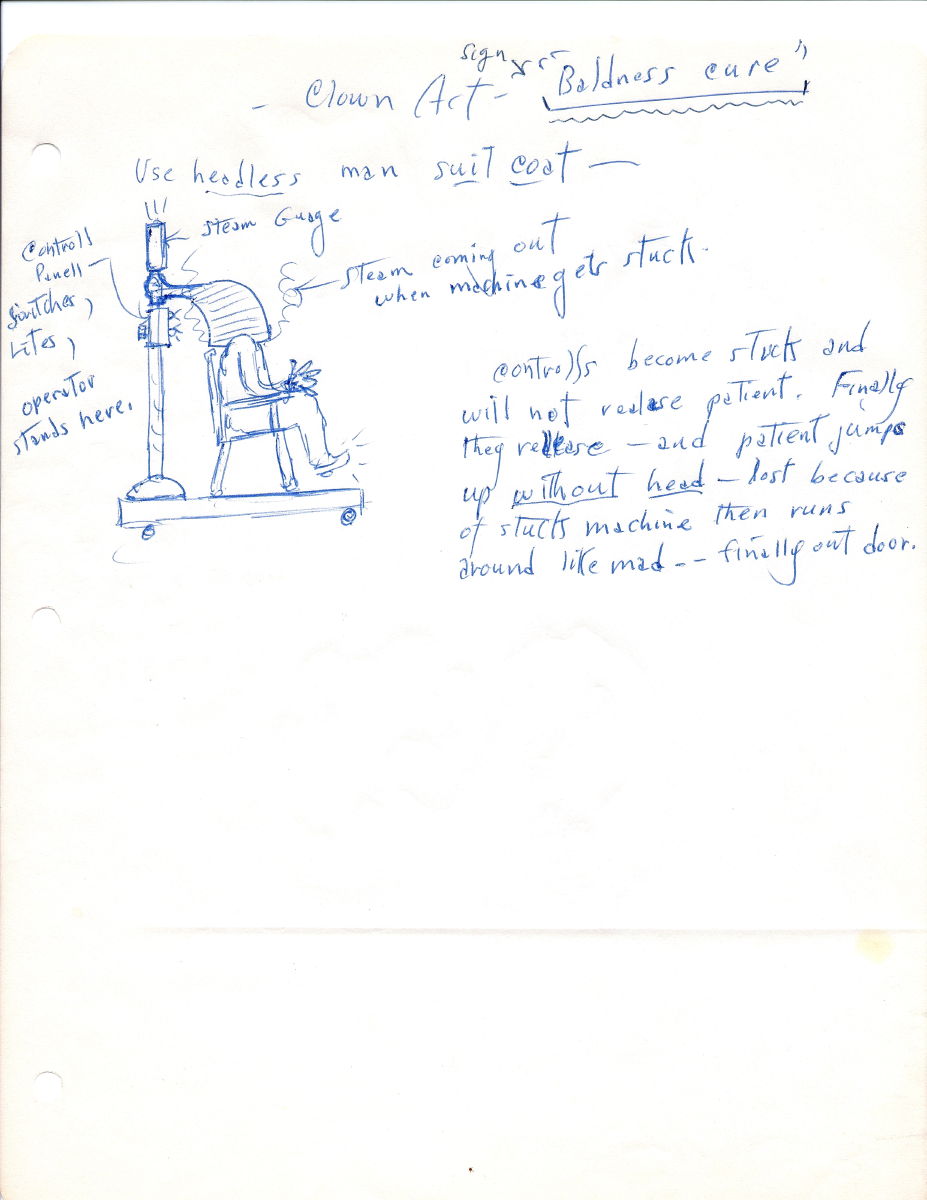 sign
- Clown Act - "Baldness cure"
Use headless man suit coat —
steam Guage
Controlls
Panell
Switches,
Lites,
operator
stands here.
steam coming out
when machine gets stuck.
Controlls become stuck and
will not realese patient. Finally
they rellease - and patient jumps
up without head - lost because
of stuck machine then runs
around like mad -- finally out door.